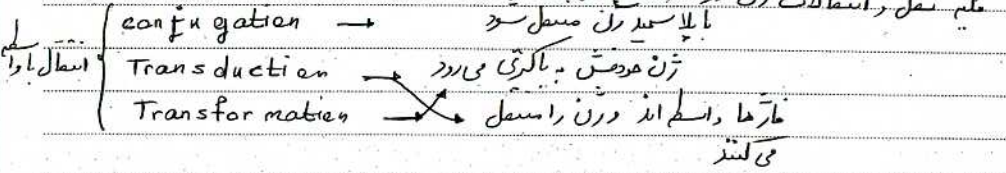 نقل و انتقالات ژن
conjugation → با پلاسمید ژن منتقل شود
انتقال باواسطه
Transduction → ژن خودش به باکتری می‌رود
Transformation → فاژها واسطه‌اند و ژن را منتقل
می‌کنند